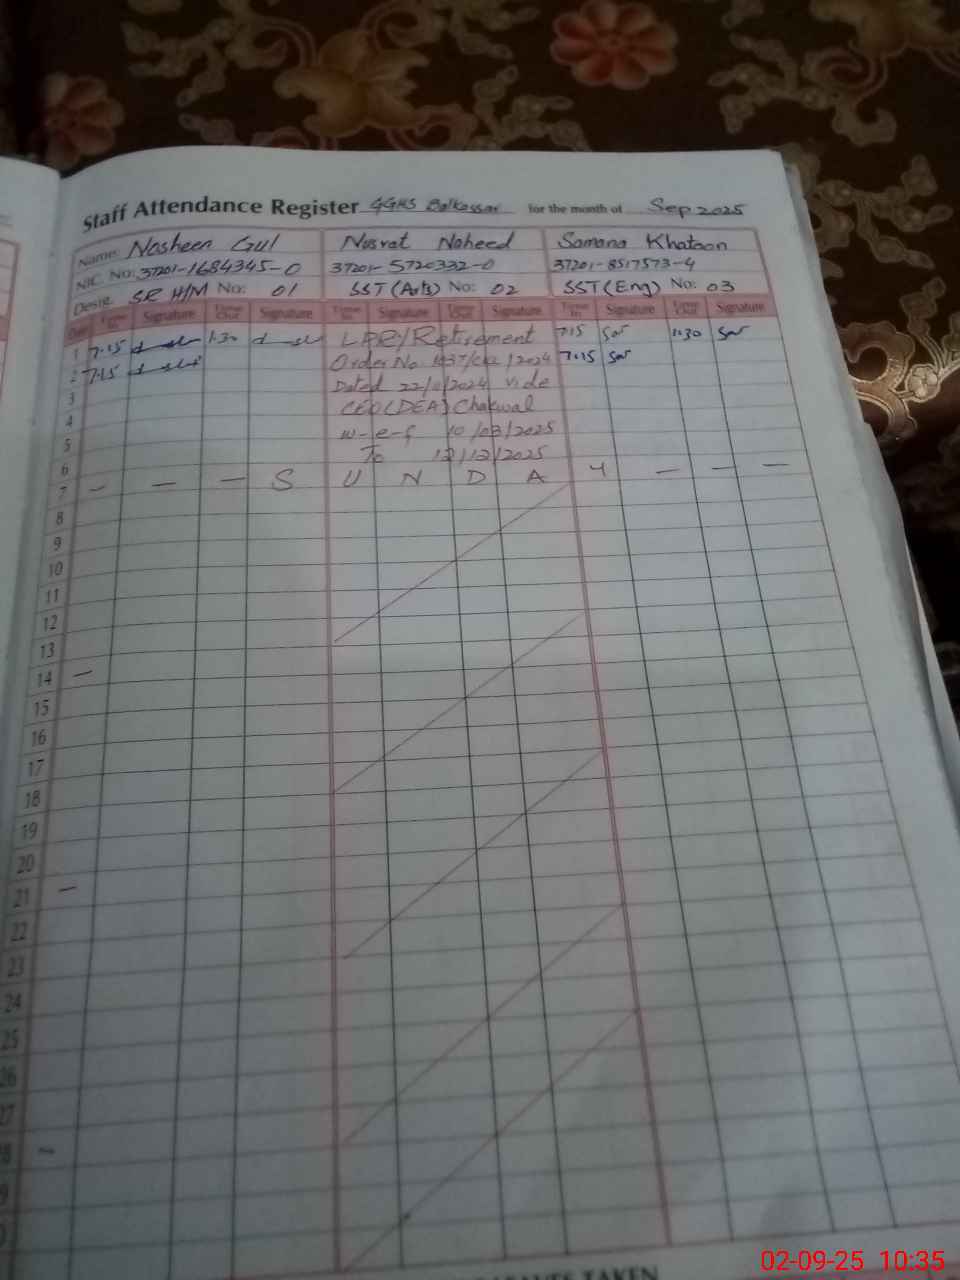 Staff Attendance Register GGHS Balkassar for the month of Sep 2025
Name: Nosheen Gul Nusrat Naheed Samana Khatoon
NIC. No: 37201-1684345-0 37201-5720332-0 37201-8517573-4
Desig. SR H/M No: 01 SST (Arts) No: 02 SST (Eng) No: 03
Date Time In Signature Time Out Signature Time In Signature Time Out Signature Time In Signature Time Out Signature
1 7.15 1.30 LPR/Retirement 7.15 Sar 1.30 Sar
2 7.15 Order No. /2024 7.15 Sar
3 Dated 2024 vide
4 CEO (DEA) Chakwal
5 w-e-f 10/03/2025
6 To /12/2025
7 — — — S U N D A Y — — —
8
9
10
11
12
13
14 —
15
16
17
18
19
20
21 —
22
23
24
25
26
27
28 —
LEAVES TAKEN
02-09-25 10:35